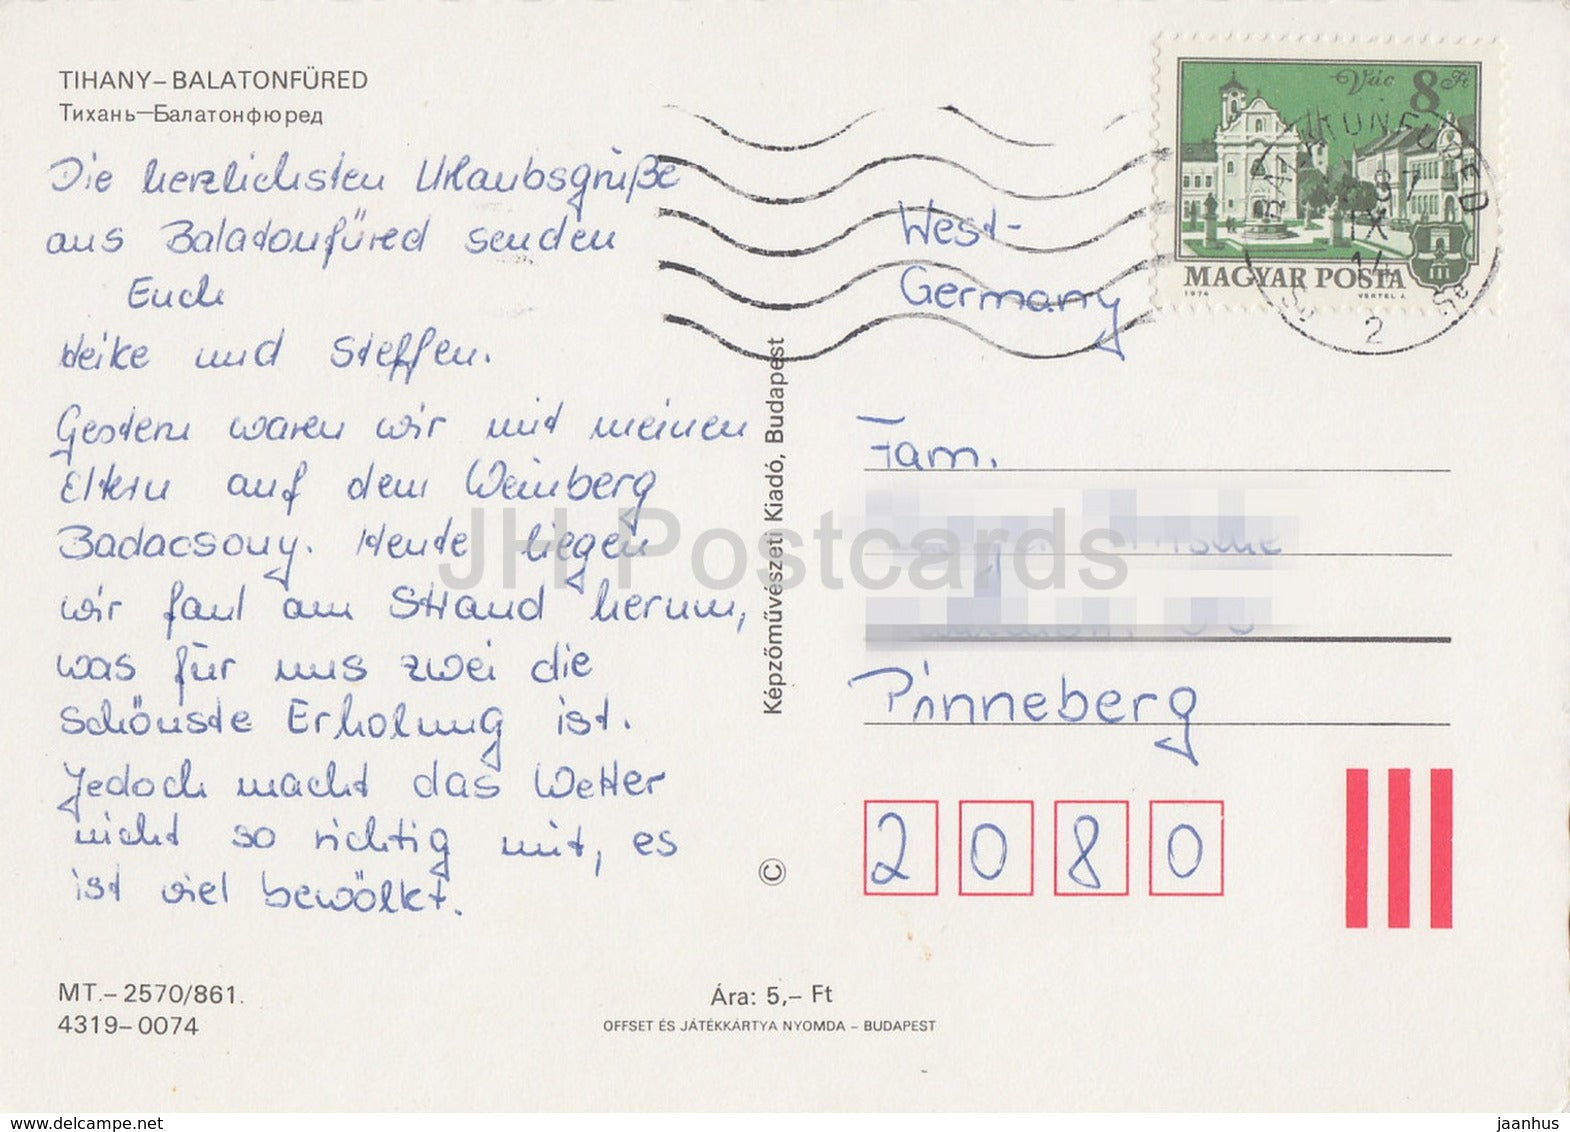 TIHANY–BALATONFÜRED
Тихань—Балатонфюред
Die herzlichsten Urlaubsgrüße
aus Balatonfüred senden
Euch
Heike und Steffen.
Gestern waren wir mit meinen
Eltern auf dem Weinberg
Badacsony. Heute liegen
wir faul am Strand herum,
was für uns zwei die
schönste Erholung ist.
Jedoch macht das Wetter
nicht so richtig mit, es
ist viel bewölkt.
MT.–2570/861.
4319–0074
Ára: 5,– Ft
OFFSET ÉS JÁTÉKKÁRTYA NYOMDA – BUDAPEST
© Képzőművészeti Kiadó, Budapest
Vác 8 Ft
MAGYAR POSTA
1974 VERTEL J.
87
IX
14
2
West-
Germany
Fam.
Pinneberg
2080
JH Postcards
www.delcampe.net
jaanhus